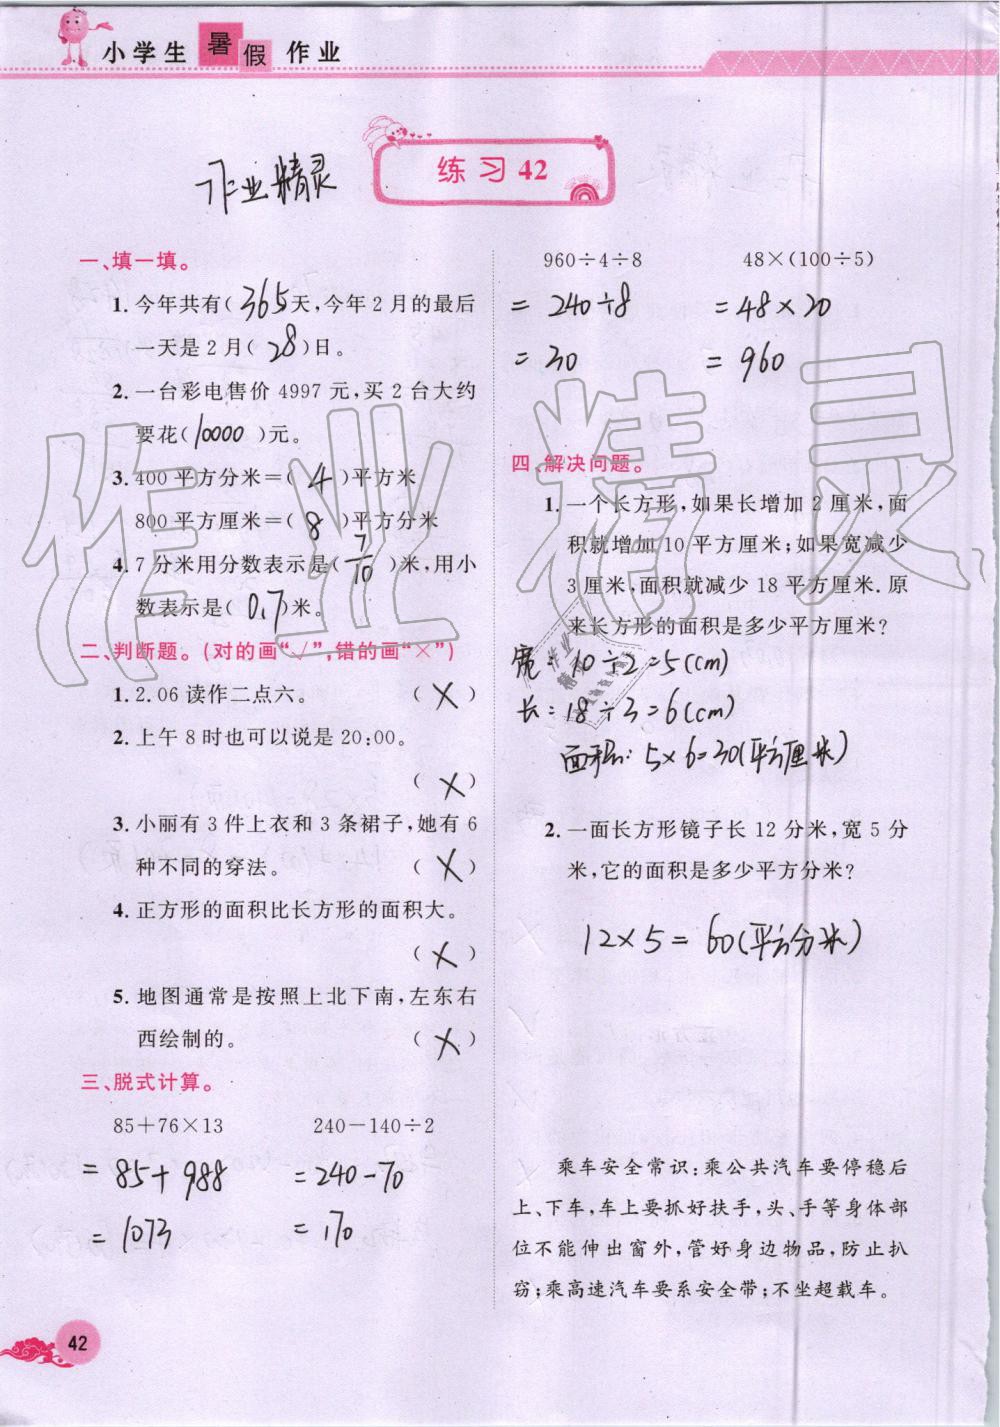 小学生暑假作业
练习42
作业精灵
一、填一填。
1. 今年共有(365天,今年2月的最后
一天是2月(28)日。
2. 一台彩电售价4997元,买2台大约
要花(10000)元。
3. 400平方分米=(4)平方米
800平方厘米=(8)平方分米
4. 7分米用分数表示是(7/10)米,用小
数表示是(0.7)米。
二、判断题。(对的画“√”,错的画“×”)
1. 2.06读作二点六。 (×)
2. 上午8时也可以说是20:00。
(×)
3. 小丽有3件上衣和3条裙子,她有6
种不同的穿法。 (×)
4. 正方形的面积比长方形的面积大。
(×)
5. 地图通常是按照上北下南,左东右
西绘制的。 (×)
三、脱式计算。
85+76×13 240-140÷2
=85+988 =240-70
=1073 =170
960÷4÷8 48×(100÷5)
=240÷8 =48×20
=30 =960
四、解决问题。
1. 一个长方形,如果长增加2厘米,面
积就增加10平方厘米;如果宽减少
3厘米,面积就减少18平方厘米.原
来长方形的面积是多少平方厘米?
宽:10÷2=5(cm)
长:18÷3=6(cm)
面积:5×6=30(平方厘米)
2. 一面长方形镜子长12分米,宽5分
米,它的面积是多少平方分米?
12×5=60(平方分米)
乘车安全常识:乘公共汽车要停稳后
上、下车,车上要抓好扶手,头、手等身体部
位不能伸出窗外,管好身边物品,防止扒
窃;乘高速汽车要系安全带;不坐超载车。
42
作业精灵